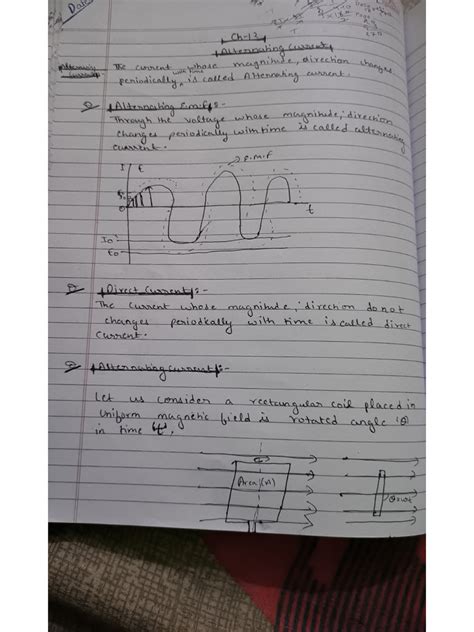 Date
Ch-13
Alternating Current
Alternating current
The current whose magnitude, direction changes
periodically with time, is called Alternating current.
Alternating E.m.f :-
Through the voltage whose magnitude, direction
changes periodically with time is called alternating
current.
I E
E.M.F
0
t
Io
Eo
Direct Current :-
The current whose magnitude, direction do not
changes periodically with time is called direct
current.
Alternating current :-
Let us consider a rectangular coil placed in
uniform magnetic field is rotated angle 'θ'
in time 't'.
Area (A)
θ=wt